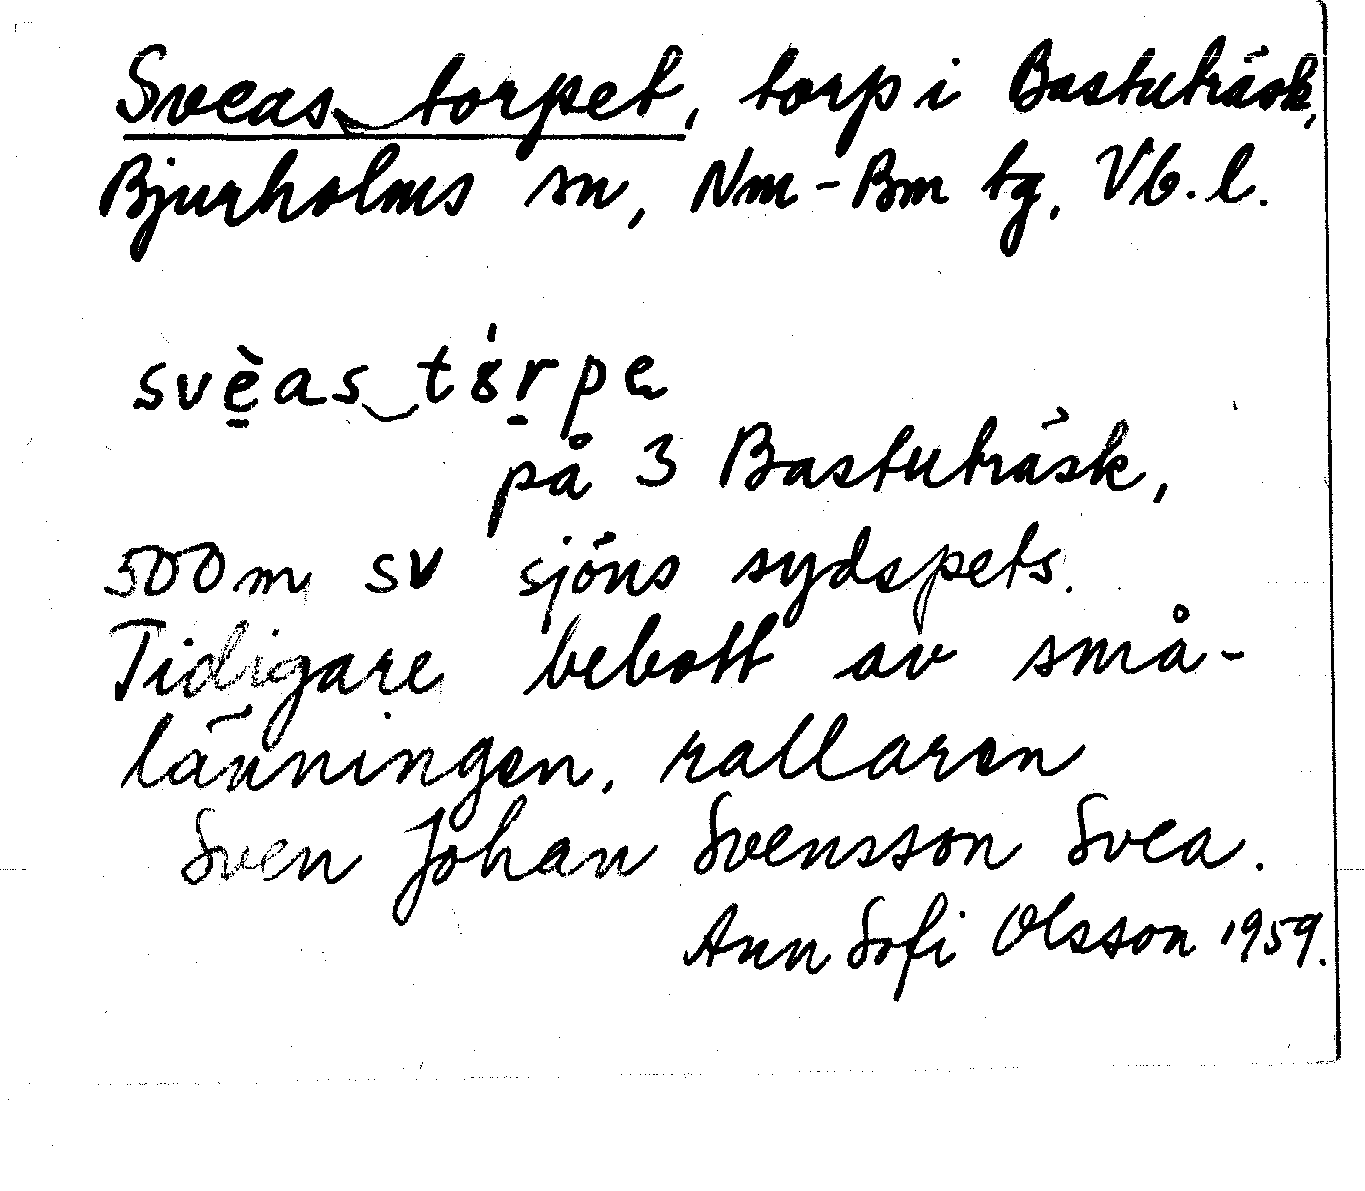 Sveas‿torpet, torp i Bastuträsk,
Bjurholms sn, Nm-Bm tg, Vb. l.
svè̱as‿tȣ́r̲pe̜
på 3 Bastuträsk,
500m sv sjöns sydspets.
Tidigare bebott av små-
länningen, rallaren
Sven Johan Svensson Svea.
Ann Sofi Olsson 1959.